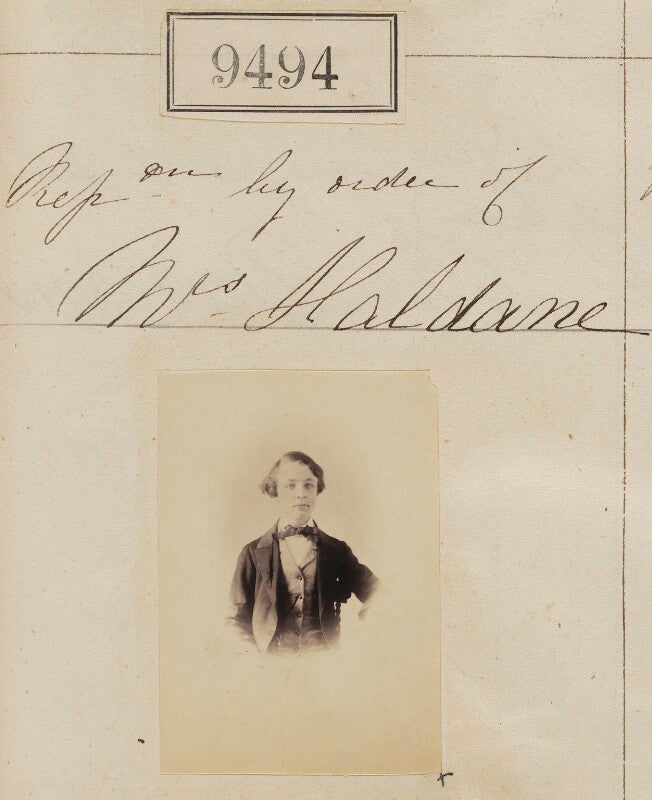 9494
Rep on by order of
Mrs Haldane